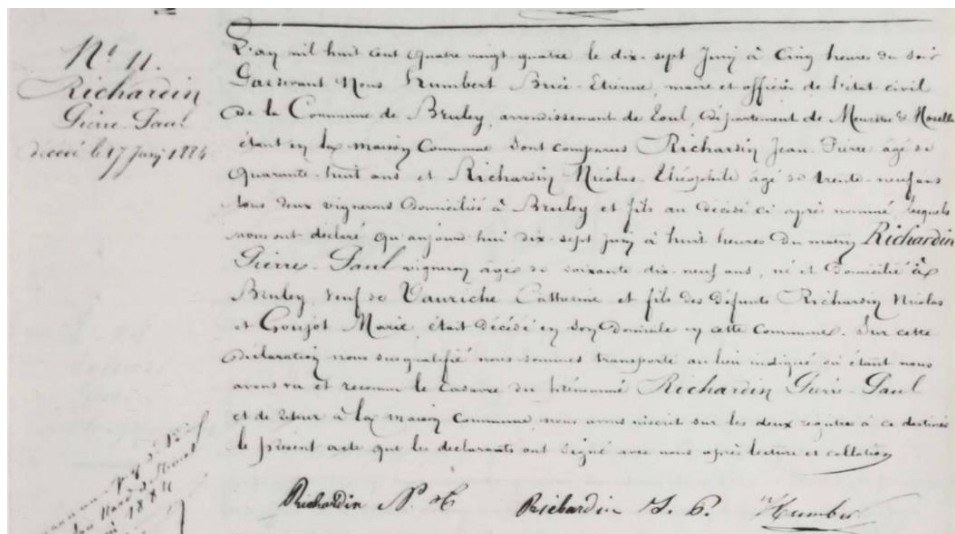 N° 11.
Richardin
Pierre-Paul
décédé le 17 Juin 1884
L'an mil huit cent quatre vingt quatre le dix-sept Juin à Cinq heures du soir
Pardevant Nous Humbert Brice-Etienne, maire et officier de l'état civil
de la Commune de Bruley, arrondissement de Toul, département de Meurthe & Moselle
étant en la maison Commune sont comparus Richardin Jean Pierre âgé de
quarante-huit ans et Richardin Nicolas Théophile âgé de trente-neuf ans
tous deux vignerons domiciliés à Bruley et fils au décédé ci après nommé, lesquels
nous ont déclaré qu'aujourd'hui dix-sept juin à huit heures du matin Richardin
Pierre-Paul vigneron âgé de soixante dix-neuf ans, né et domicilié à
Bruley, veuf de Vauriche Catherine et fils des défunts Richardin Nicolas
et Goujot Marie, était décédé en son domicile en cette Commune. Sur cette
déclaration nous susqualifié nous sommes transporté au lieu indiqué où étant nous
avons vu et reconnu le cadavre du prénommé Richardin Pierre-Paul
et de retour à la maison Commune nous avons inscrit sur les deux registres à ce destinés
le présent acte que les déclarants ont signé avec nous après lecture et collation
Richardin N. T. Richardin J. P. Humbert